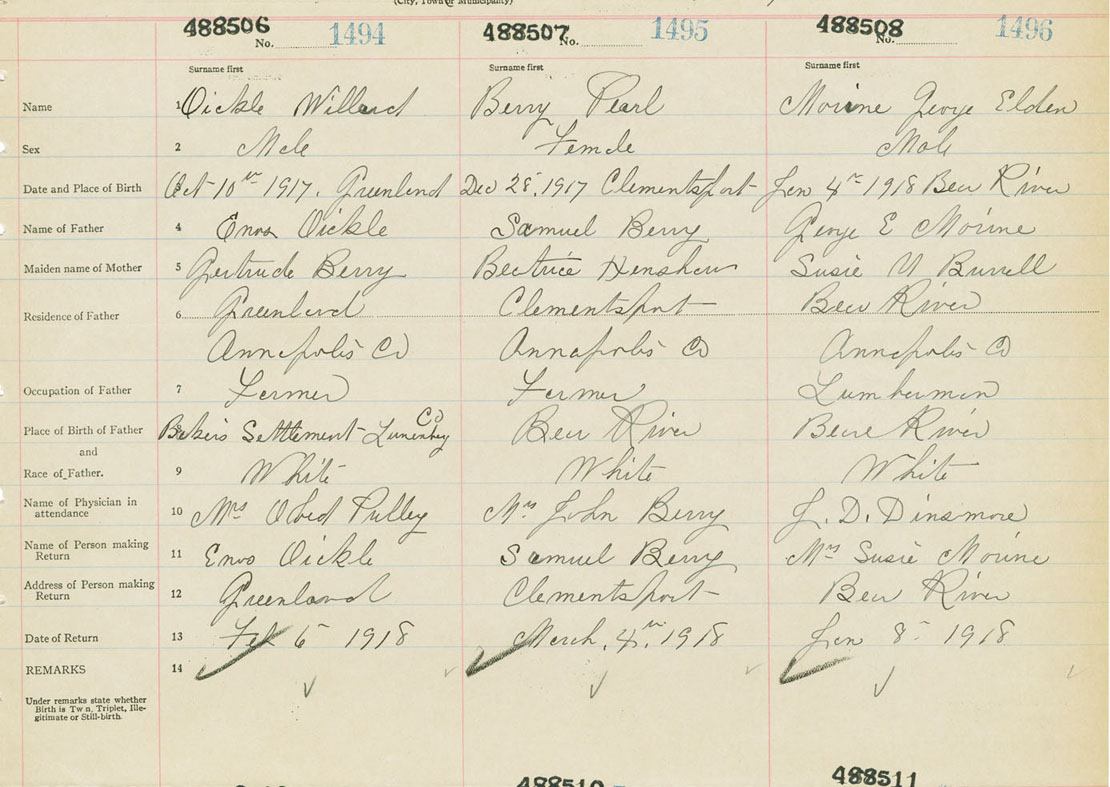 (City, Town or Municipality)
488506 No. 1494 488507 No. 1495 488508 No. 1496
Surname first Surname first Surname first
Name 1 Oickle Willard Berry Pearl Morine George Elden
Sex 2 Male Female Male
Date and Place of Birth 3 Oct 10th 1917. Greenland Dec 28, 1917 Clementsport Jan 4th 1918 Bear River
Name of Father 4 Enos Oickle Samuel Berry George E Morine
Maiden name of Mother 5 Gertrude Berry Beatrice Henshaw Susie Burrell
Residence of Father 6 Greenland Clementsport Bear River
Annapolis Co Annapolis Co Annapolis Co
Occupation of Father 7 Farmer Farmer Lumberman
Place of Birth of Father 8 Bakers Settlement Lunenburg Co Bear River Bear River
and
Race of Father. 9 White White White
Name of Physician in
attendance 10 Mrs Obed Pulley Mrs John Berry L. D. Dinsmore
Name of Person making
Return 11 Enos Oickle Samuel Berry Mrs Susie Morine
Address of Person making
Return 12 Greenland Clementsport Bear River
Date of Return 13 Feb 6 1918 March, 4th, 1918 Jan 8 1918
REMARKS 14
Under remarks state whether
Birth is Tw n, Triplet, Ille-
gitimate or Still-birth.
488510 488511